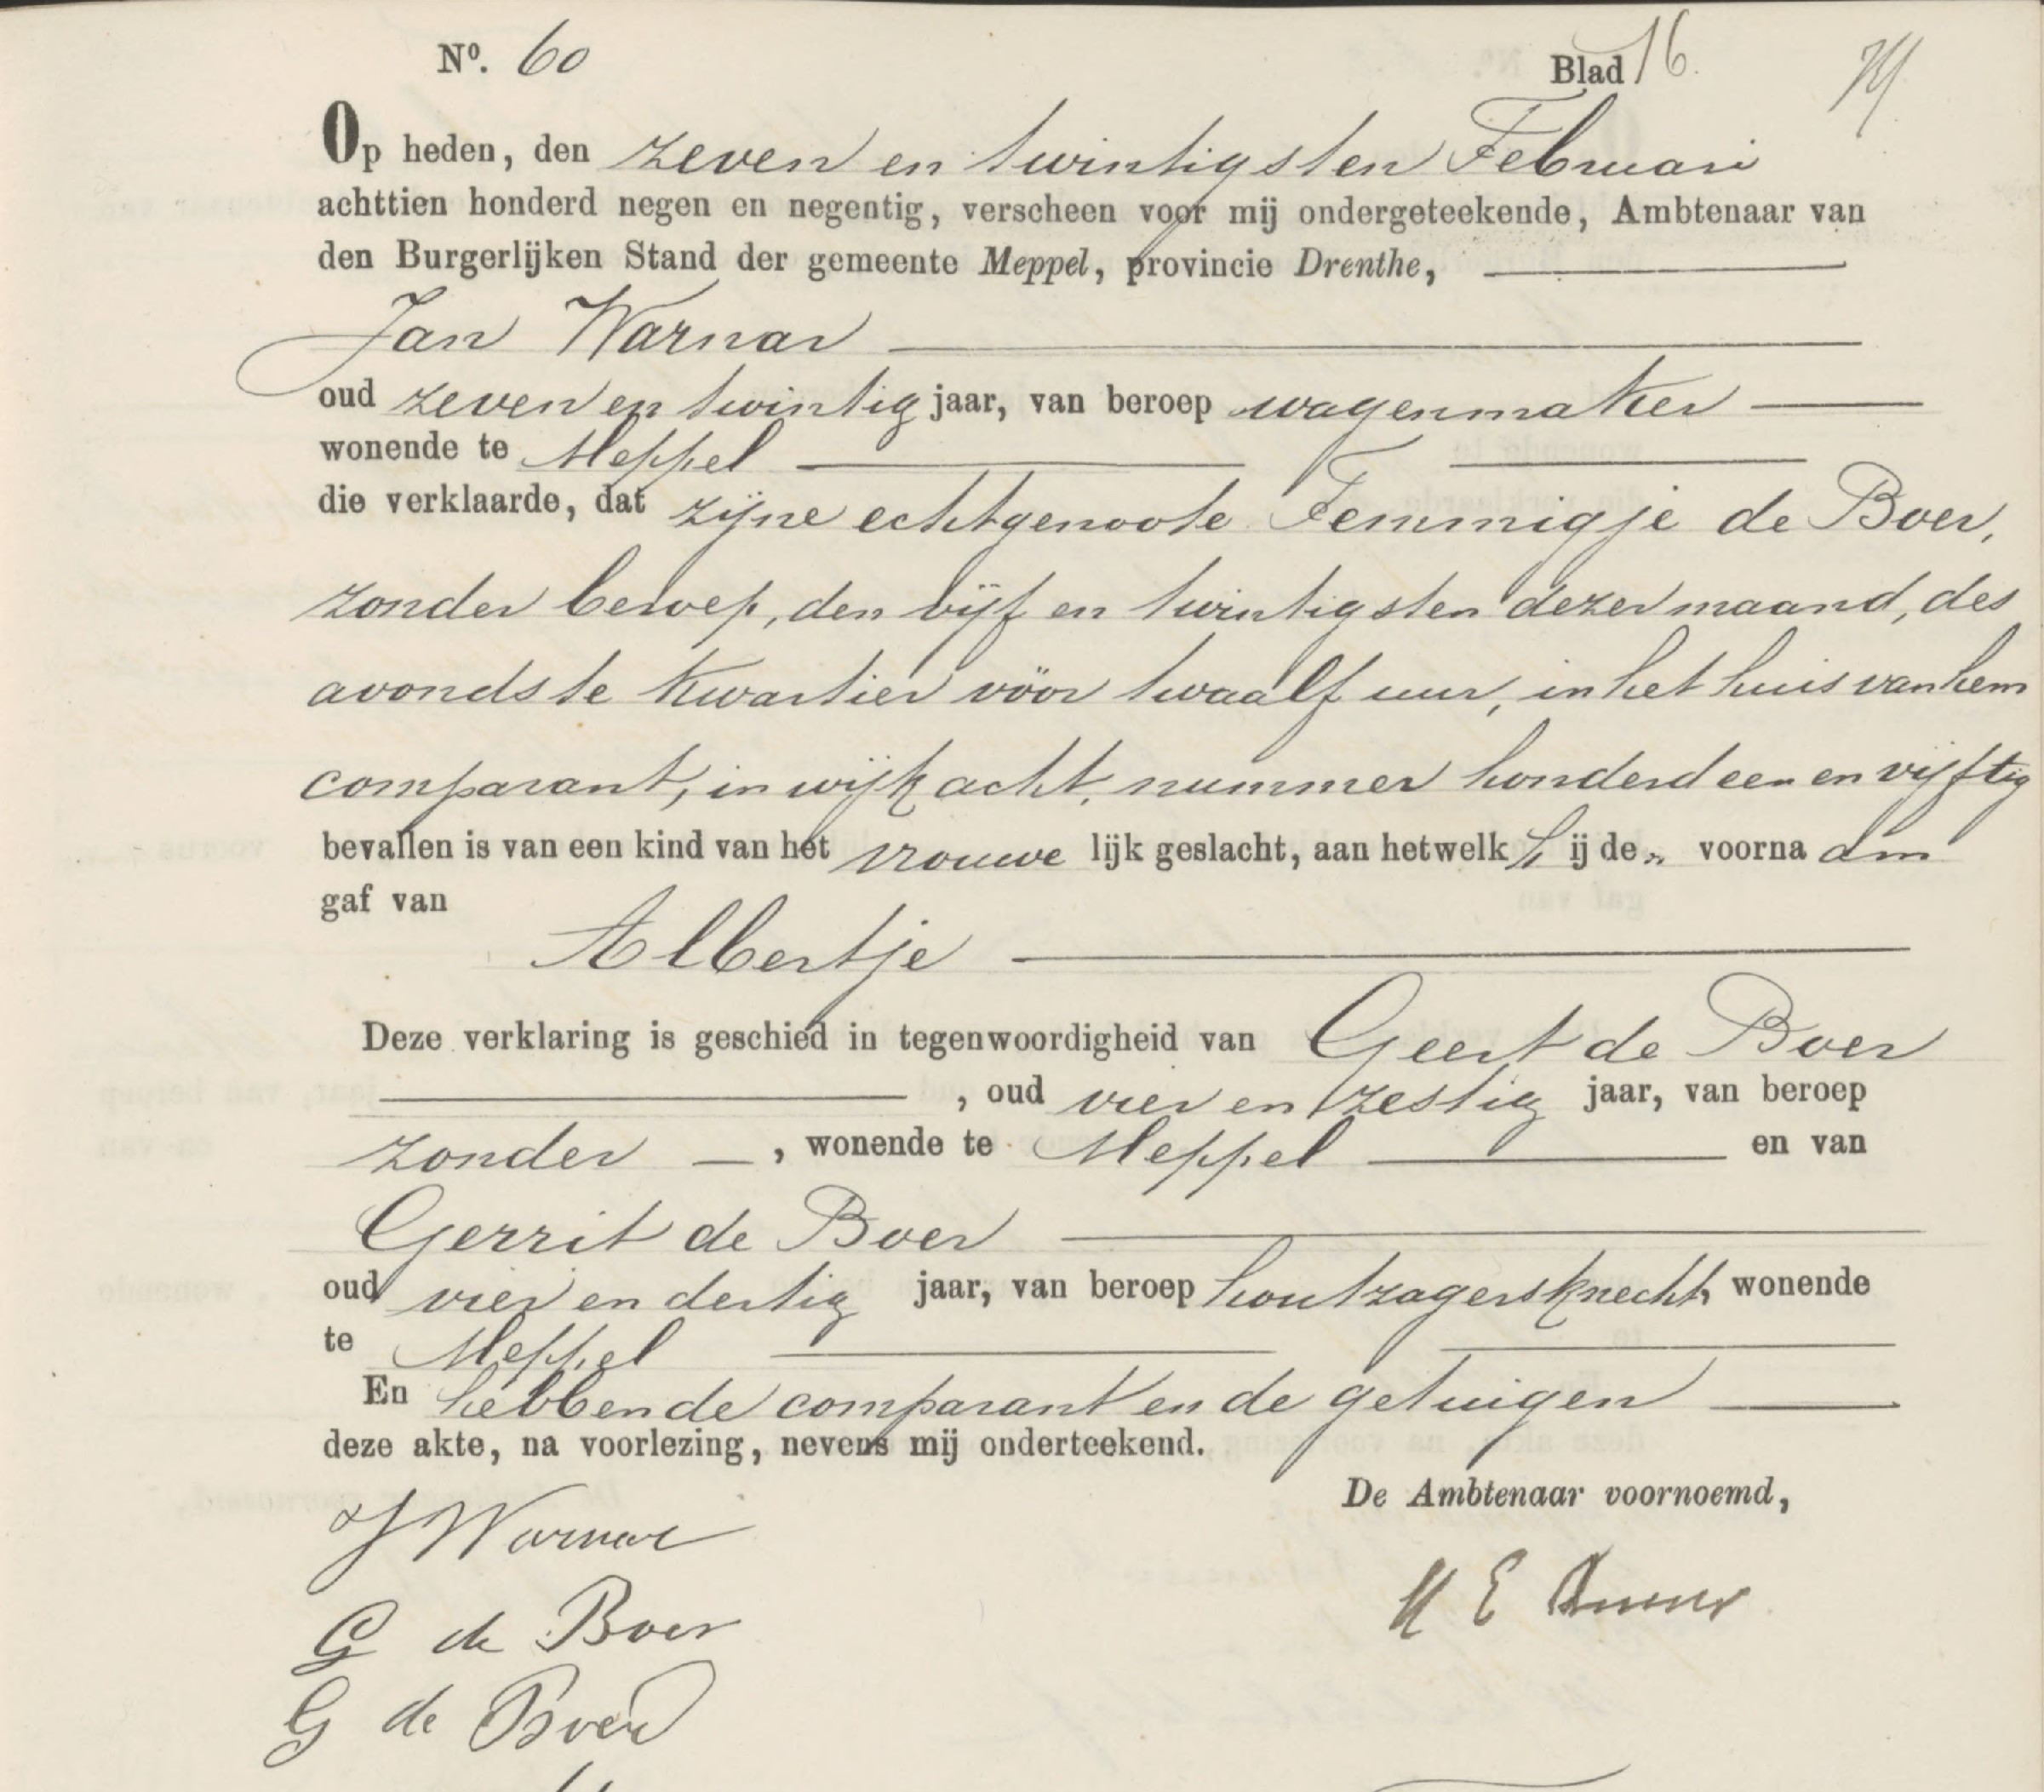 Nº. 60 Blad 16
Op heden, den zeven en twintigsten Februari
achttien honderd negen en negentig, verscheen voor mij ondergeteekende, Ambtenaar van
den Burgerlijken Stand der gemeente Meppel, provincie Drenthe,
Jan Warnar
oud zeven en twintig jaar, van beroep wagenmaker
wonende te Meppel
die verklaarde, dat zijne echtgenoote Femmigje de Boer,
zonder beroep, den vijf en twintigsten dezer maand, des
avonds te kwartier vóór twaalf uur, in het huis van hem
comparant, in wijk acht, nummer honderd een en vijftig
bevallen is van een kind van het vrouwe lijk geslacht, aan hetwelk h ij de n voorna am
gaf van
Albertje
Deze verklaring is geschied in tegenwoordigheid van Geert de Boer
, oud vier en zestig jaar, van beroep
zonder , wonende te Meppel en van
Gerrit de Boer
oud vier en dertig jaar, van beroep houtzagersknecht, wonende
te Meppel
En hebben de comparant en de getuigen
deze akte, na voorlezing, nevens mij onderteekend.
De Ambtenaar voornoemd,
J Warnar
G de Boer
G de Boer